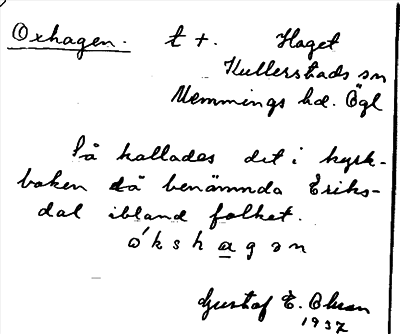 Oxhagen. t +. Haget
Kullerstads sn
Memmings hd. Ögl
Så kallades det i kyrk-
boken då benämnda Eriks-
dal ibland folket.
ók s h a g ə n
Gustaf E. Olsson
1937